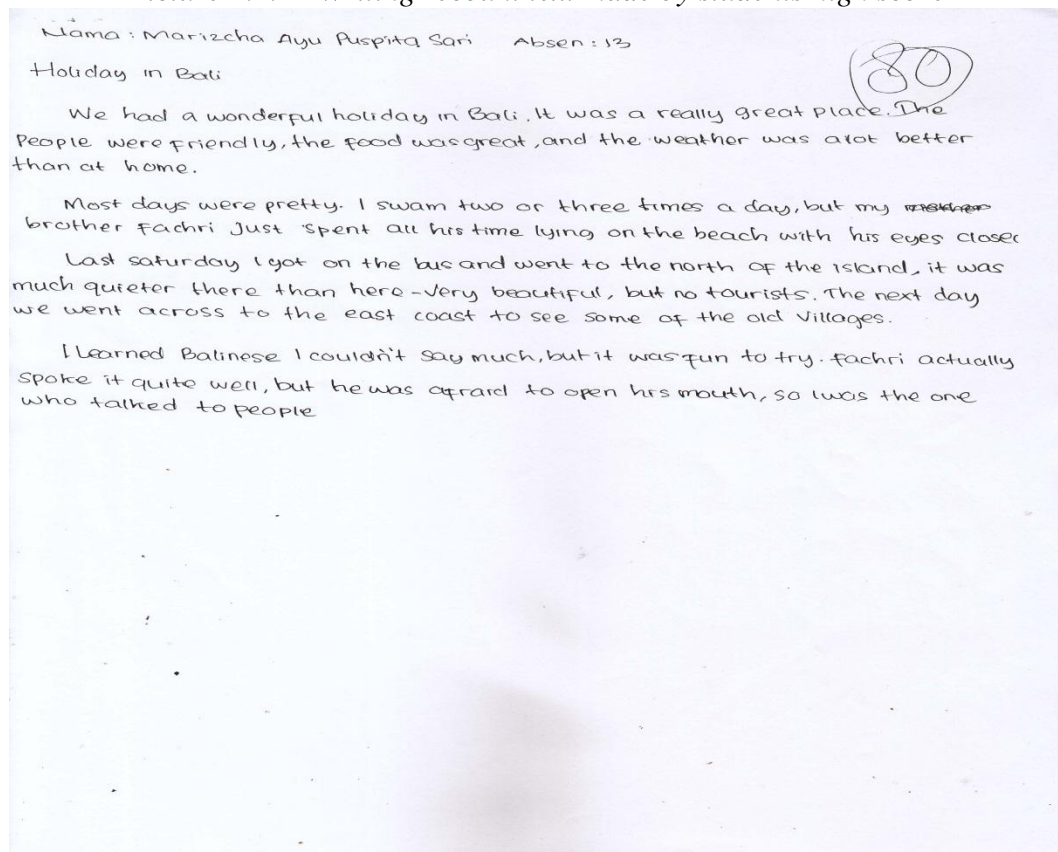 Nama : Marizcha Ayu Puspita Sari Absen : 13
80
Holiday in Bali
We had a wonderful holiday in Bali. It was a really great place. The
People were friendly, the food was great, and the weather was alot better
than at home.
Most days were pretty. I swam two or three times a day, but my
brother Fachri Just spent all his time lying on the beach with his eyes closed
Last saturday I got on the bus and went to the north of the island, it was
much quieter there than here - very beautiful, but no tourists. The next day
we went across to the east coast to see some of the old villages.
I Learned Balinese I couldn't say much, but it was fun to try. fachri actually
spoke it quite well, but he was afraid to open his mouth, so I was the one
who talked to people